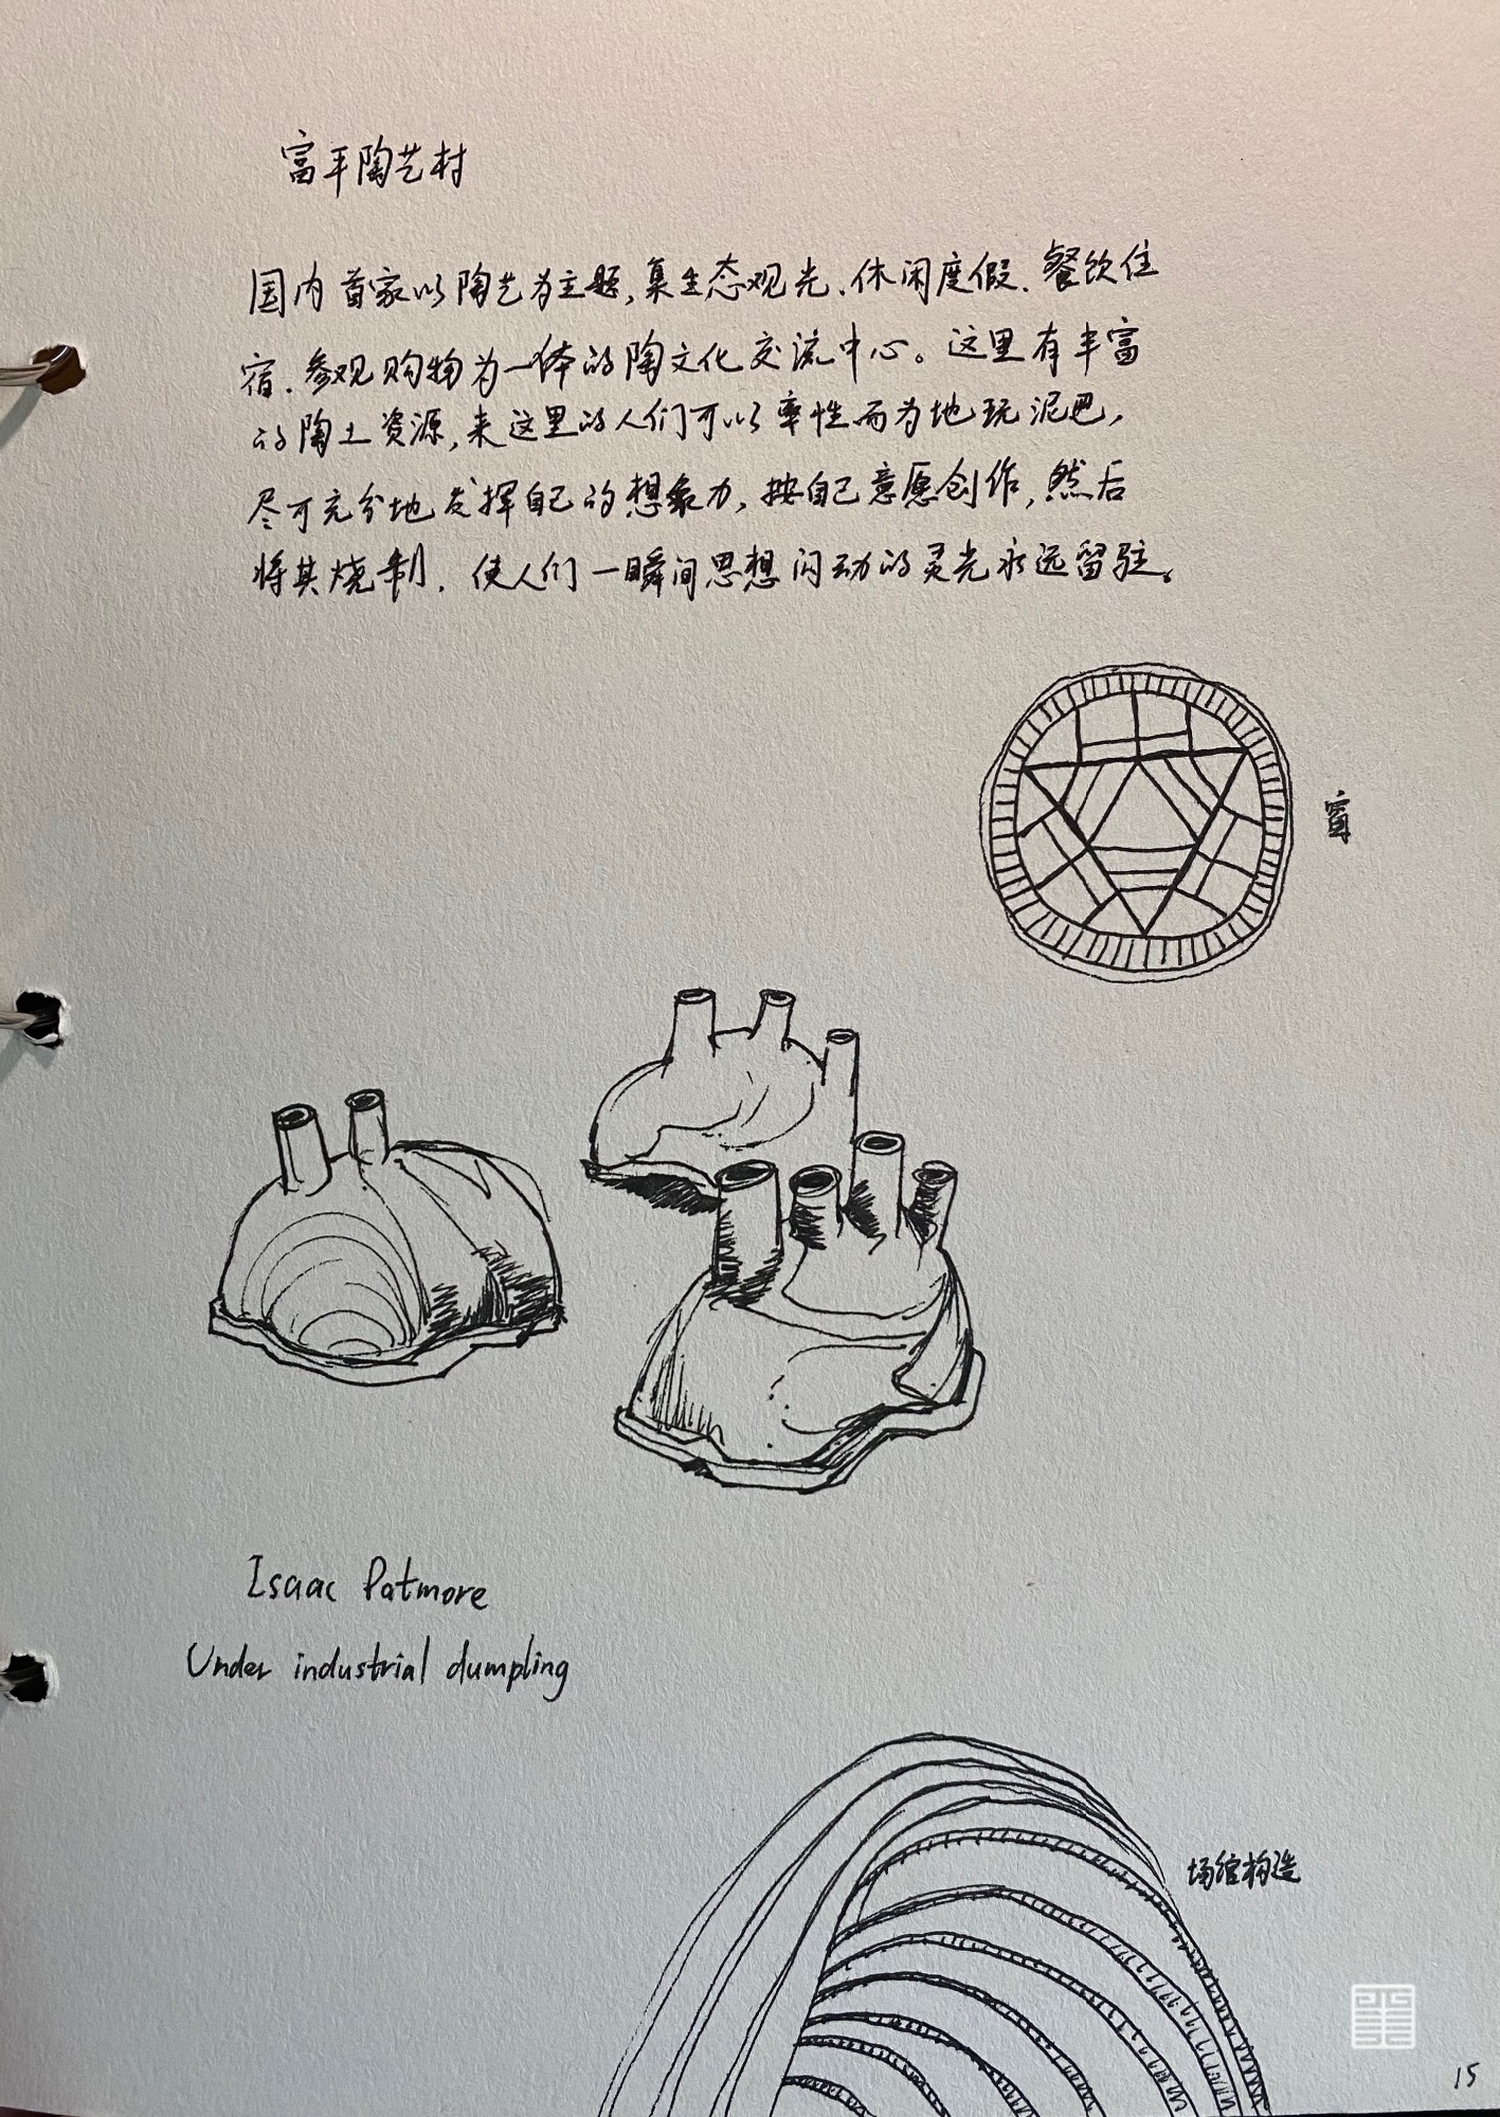 富平陶艺村
国内首家以陶艺为主题,集生态观光、休闲度假、餐饮住
宿、参观购物为一体的陶文化交流中心。这里有丰富
的陶土资源,来这里的人们可以率性而为地玩泥巴,
尽可充分地发挥自己的想象力,按自己意愿创作,然后
将其烧制,使人们一瞬间思想闪动的灵光永远留驻。
窗
Isaac Patmore
Under industrial dumpling
场馆构造
15